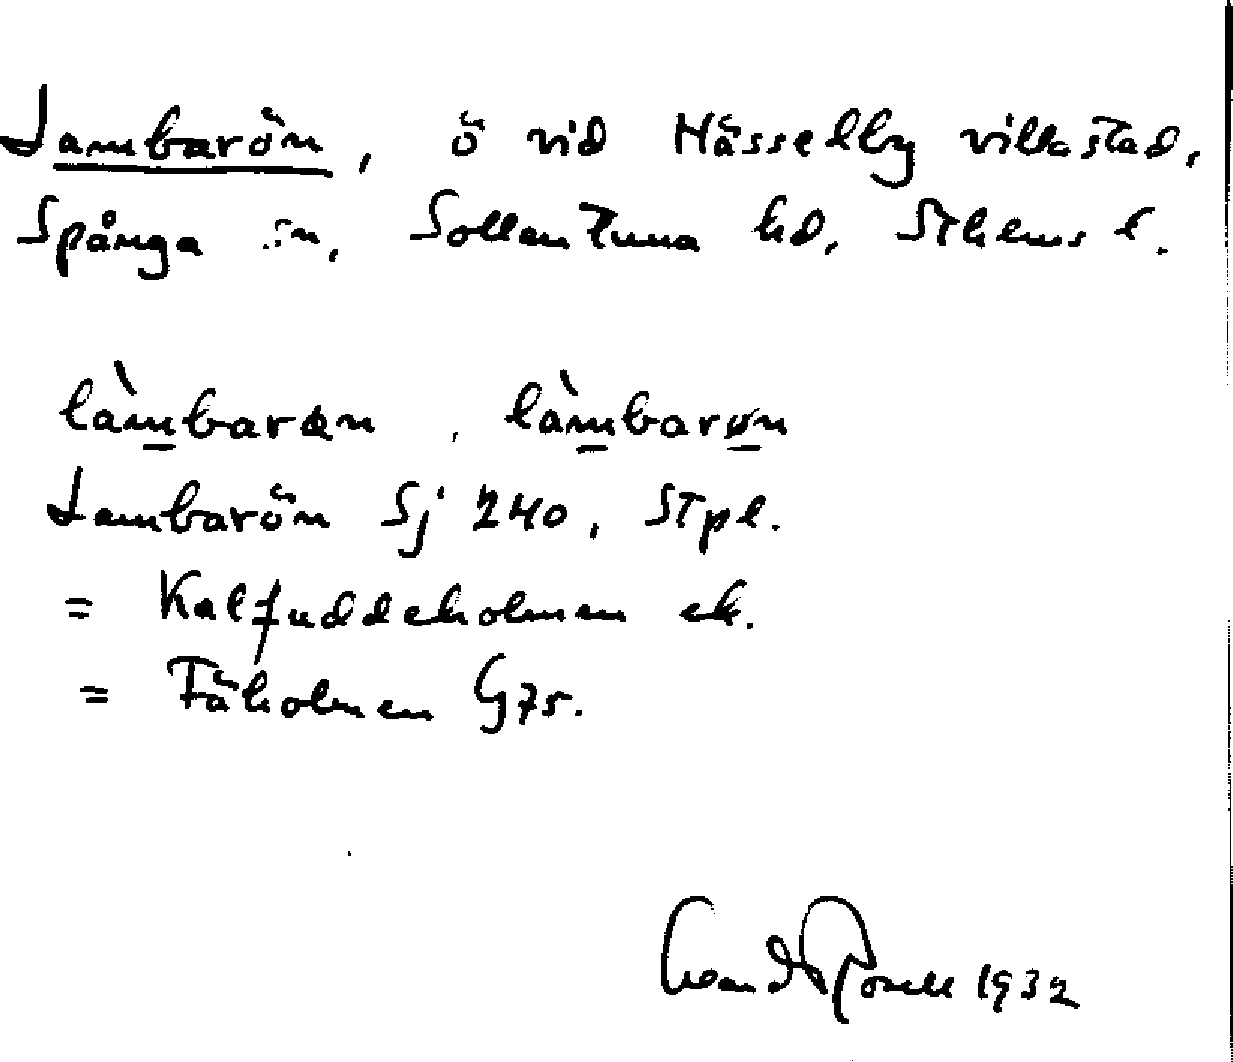 Lambarön, ö vid Hässelby villastad,
Spånga sn, Sollentuna hd, Sthlms l.
làmbaran, làmbarøn
Lambarön Sj 240, Stpl.
= Kalfuddeholmen ek.
= Fäholmen G75.
1932